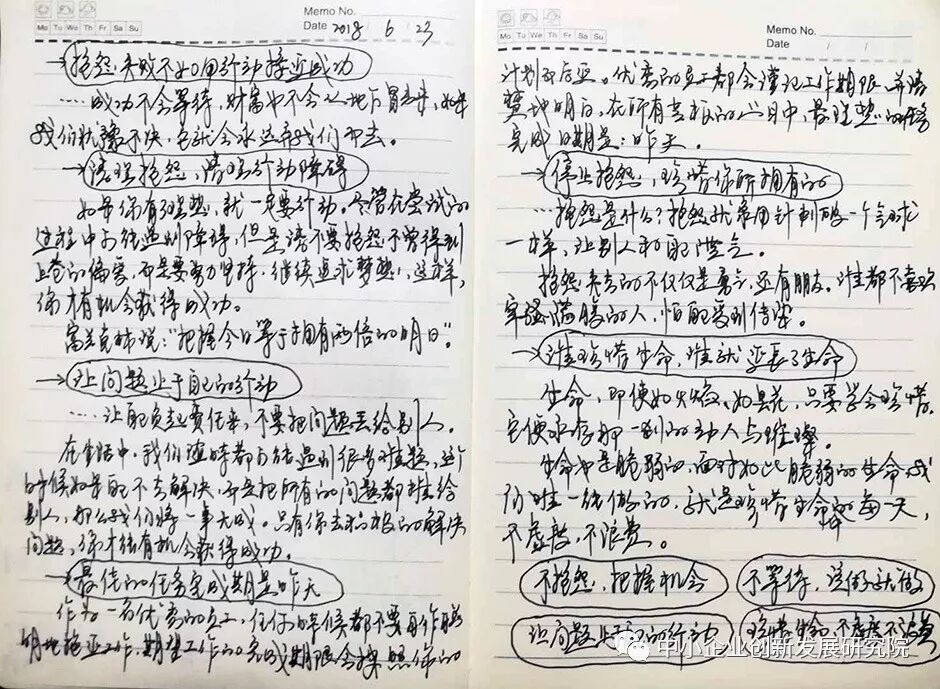 Memo No.
Mo Tu We Th Fr Sa Su
Date 2018 / 6 / 23
→抱怨失败不如用行动接近成功
……成功不会等待,财富也不会从地下冒出来,如果
我们犹豫不决,它就会永远弃我们而去。
→清理抱怨,清除行动障碍
如果你有理想,就一定要行动。尽管在尝试的
过程中会遇到障碍,但是请不要抱怨不曾得到
上苍的偏爱,而是要努力坚持,继续追求梦想,这样,
你才有机会获得成功。
富兰克林说:“把握今日等于拥有两倍的明日”。
→让问题止于自己的行动
……让自己负起责任来,不要把问题丢给别人。
在生活中,我们随时都可能遇到很多难题,这个
时候如果自己不去解决,而是把所有的问题都推给
别人,那么我们将一事无成。只有你去积极的解决
问题,你才能有机会获得成功。
→最佳的任务完成期是昨天
作为一名优秀的员工,任何时候都不要自作聪
明地拖延工作,期望工作的完成期限会按照你的
Memo No.
Mo Tu We Th Fr Sa Su
Date / /
计划而后延。优秀的员工都会谨记工作期限,并清
楚地明白,在所有老板的心目中,最理想的任务
完成日期是:昨天。
→停止抱怨,珍惜你所拥有的
…抱怨是什么?抱怨就象用针刺破一个气球
一样,让别人和自己泄气。
抱怨失去的不仅仅是勇气,还有朋友。谁都不喜欢
牢骚满腹的人,怕自己受到传染。
→谁珍惜生命,谁就延长了生命
生命,即便如火焰、如昙花,只要学会珍惜,
它便永存那一刻的动人与璀璨。
生命也是脆弱的,面对如此脆弱的生命,我
们唯一能做的,就是珍惜生命的每一天,
不虚度,不浪费。
不抱怨,把握机会
不等待,说做就做
让问题止于自己的行动
珍惜生命 不虚度不浪费
中小企业创新发展研究院